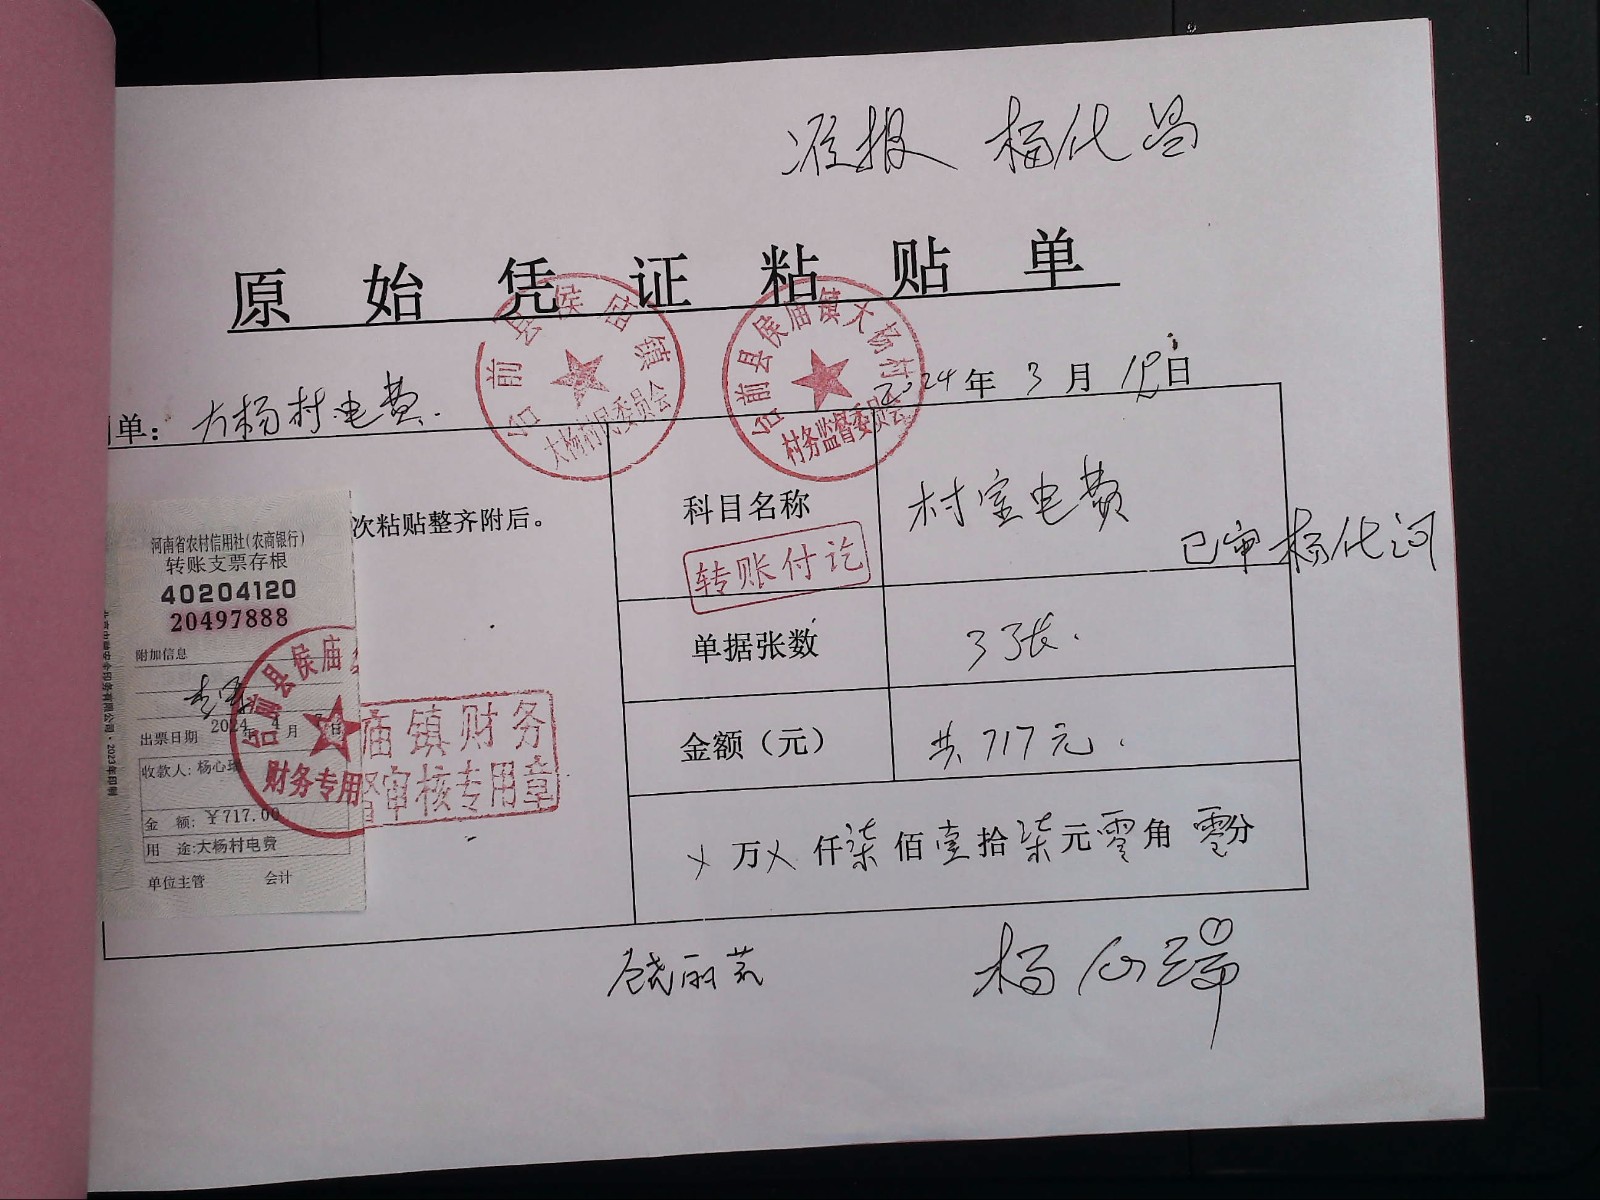 准报 杨化昌
原始凭证粘贴单
单：大杨村电费．
2024年3月19日
台前县侯庙镇
大杨村民委员会
台前县侯庙镇大杨村
村务监督委员会
次粘贴整齐附后。
科目名称 村室电费
转账付讫
已审 杨化河
单据张数 3张．
金额（元） 共717元．
乂万乂仟柒佰壹拾柒元零角零分
河南省农村信用社(农商银行)
转账支票存根
40204120
20497888
附加信息
出票日期 2024年4月 日
收款人: 杨心瑞
金 额: ￥717.00
用 途:大杨村电费
单位主管 会计
台前县侯庙
财务专用
庙镇财务
督审核专用章
杨心瑞